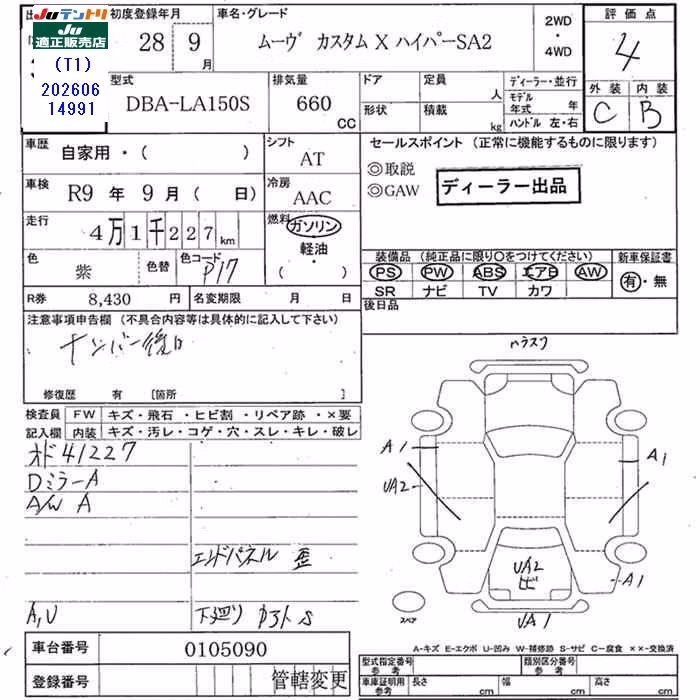 Juテントリ
Ju適正販売店
(T1)
202606
14991
初度登録年月
28 9月
車名・グレード
ムーヴ カスタム X ハイパーSA2
2WD
・
4WD
評価点
4
型式
DBA-LA150S
排気量
660 CC
ドア
定員 人
形状
積載 kg
ディーラー・並行
モデル年式 年
ハンドル 左・右
外装 C
内装 B
車歴 自家用・( )
シフト AT
車検 R9 年 9 月 ( 日)
冷房 AAC
走行 4万1千227km
燃料 ガソリン
軽油
・
( )
色 紫
色替
色コード P17
R券 8,430 円
名変期限 月 日
セールスポイント(正常に機能するものに限ります)
◎取説
◎GAW
ディーラー出品
装備品(純正品に限り〇をつけてください)
PS PW ABS エアB AW
SR ナビ TV カワ
新車保証書
有・無
後日品
注意事項申告欄(不具合内容等は具体的に記入して下さい)
ナンバー後日
修復歴 有 [箇所 ]
検査員記入欄
FW キズ・飛石・ヒビ割・リペア跡・×要
内装 キズ・汚レ・コゲ・穴・スレ・キレ・破レ
オド41227
DミラーA
A/W A
エンドパネル 歪
A,U
下廻り カタト S
ハラスク
A1
A1
UA2
UA2
ヒ
A1
UA1
スペア
A-キズ E-エクボ U-凹み W-補修跡 S-サビ C-腐食 ××-交換済
車台番号 0105090
登録番号 管轄変更
型式指定番号 参考
類別区分番号 参考
車庫証明用 参考
長さ cm
幅 cm
高さ cm